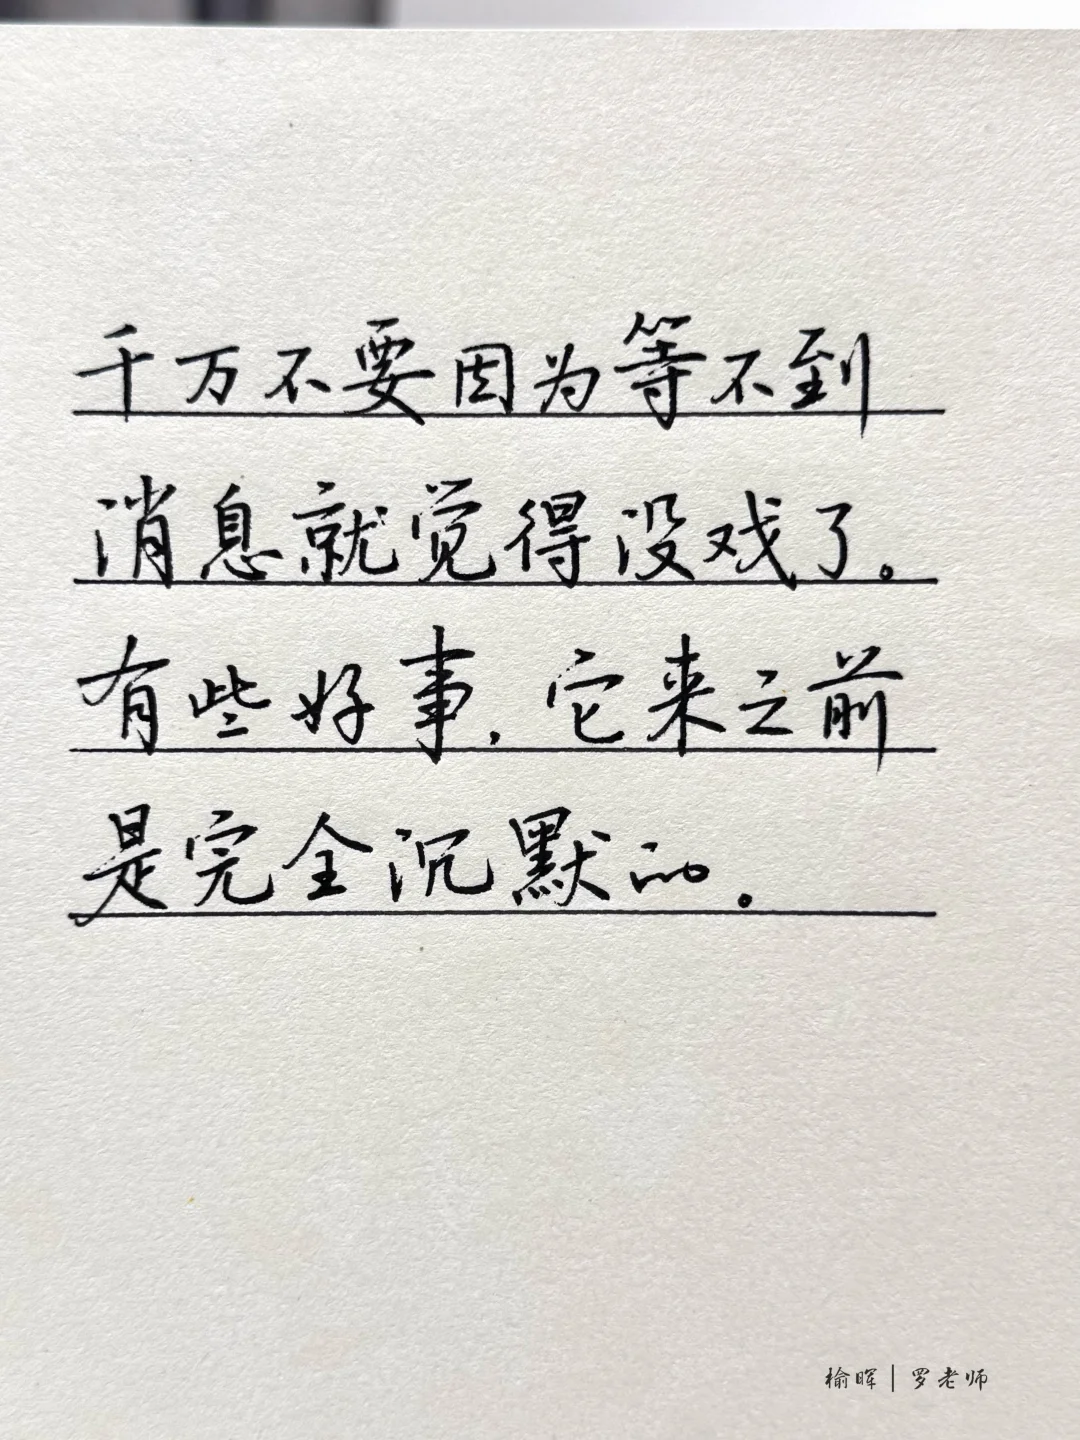 千万不要因为等不到
消息就觉得没戏了。
有些好事,它来之前
是完全沉默的。
榆晖|罗老师